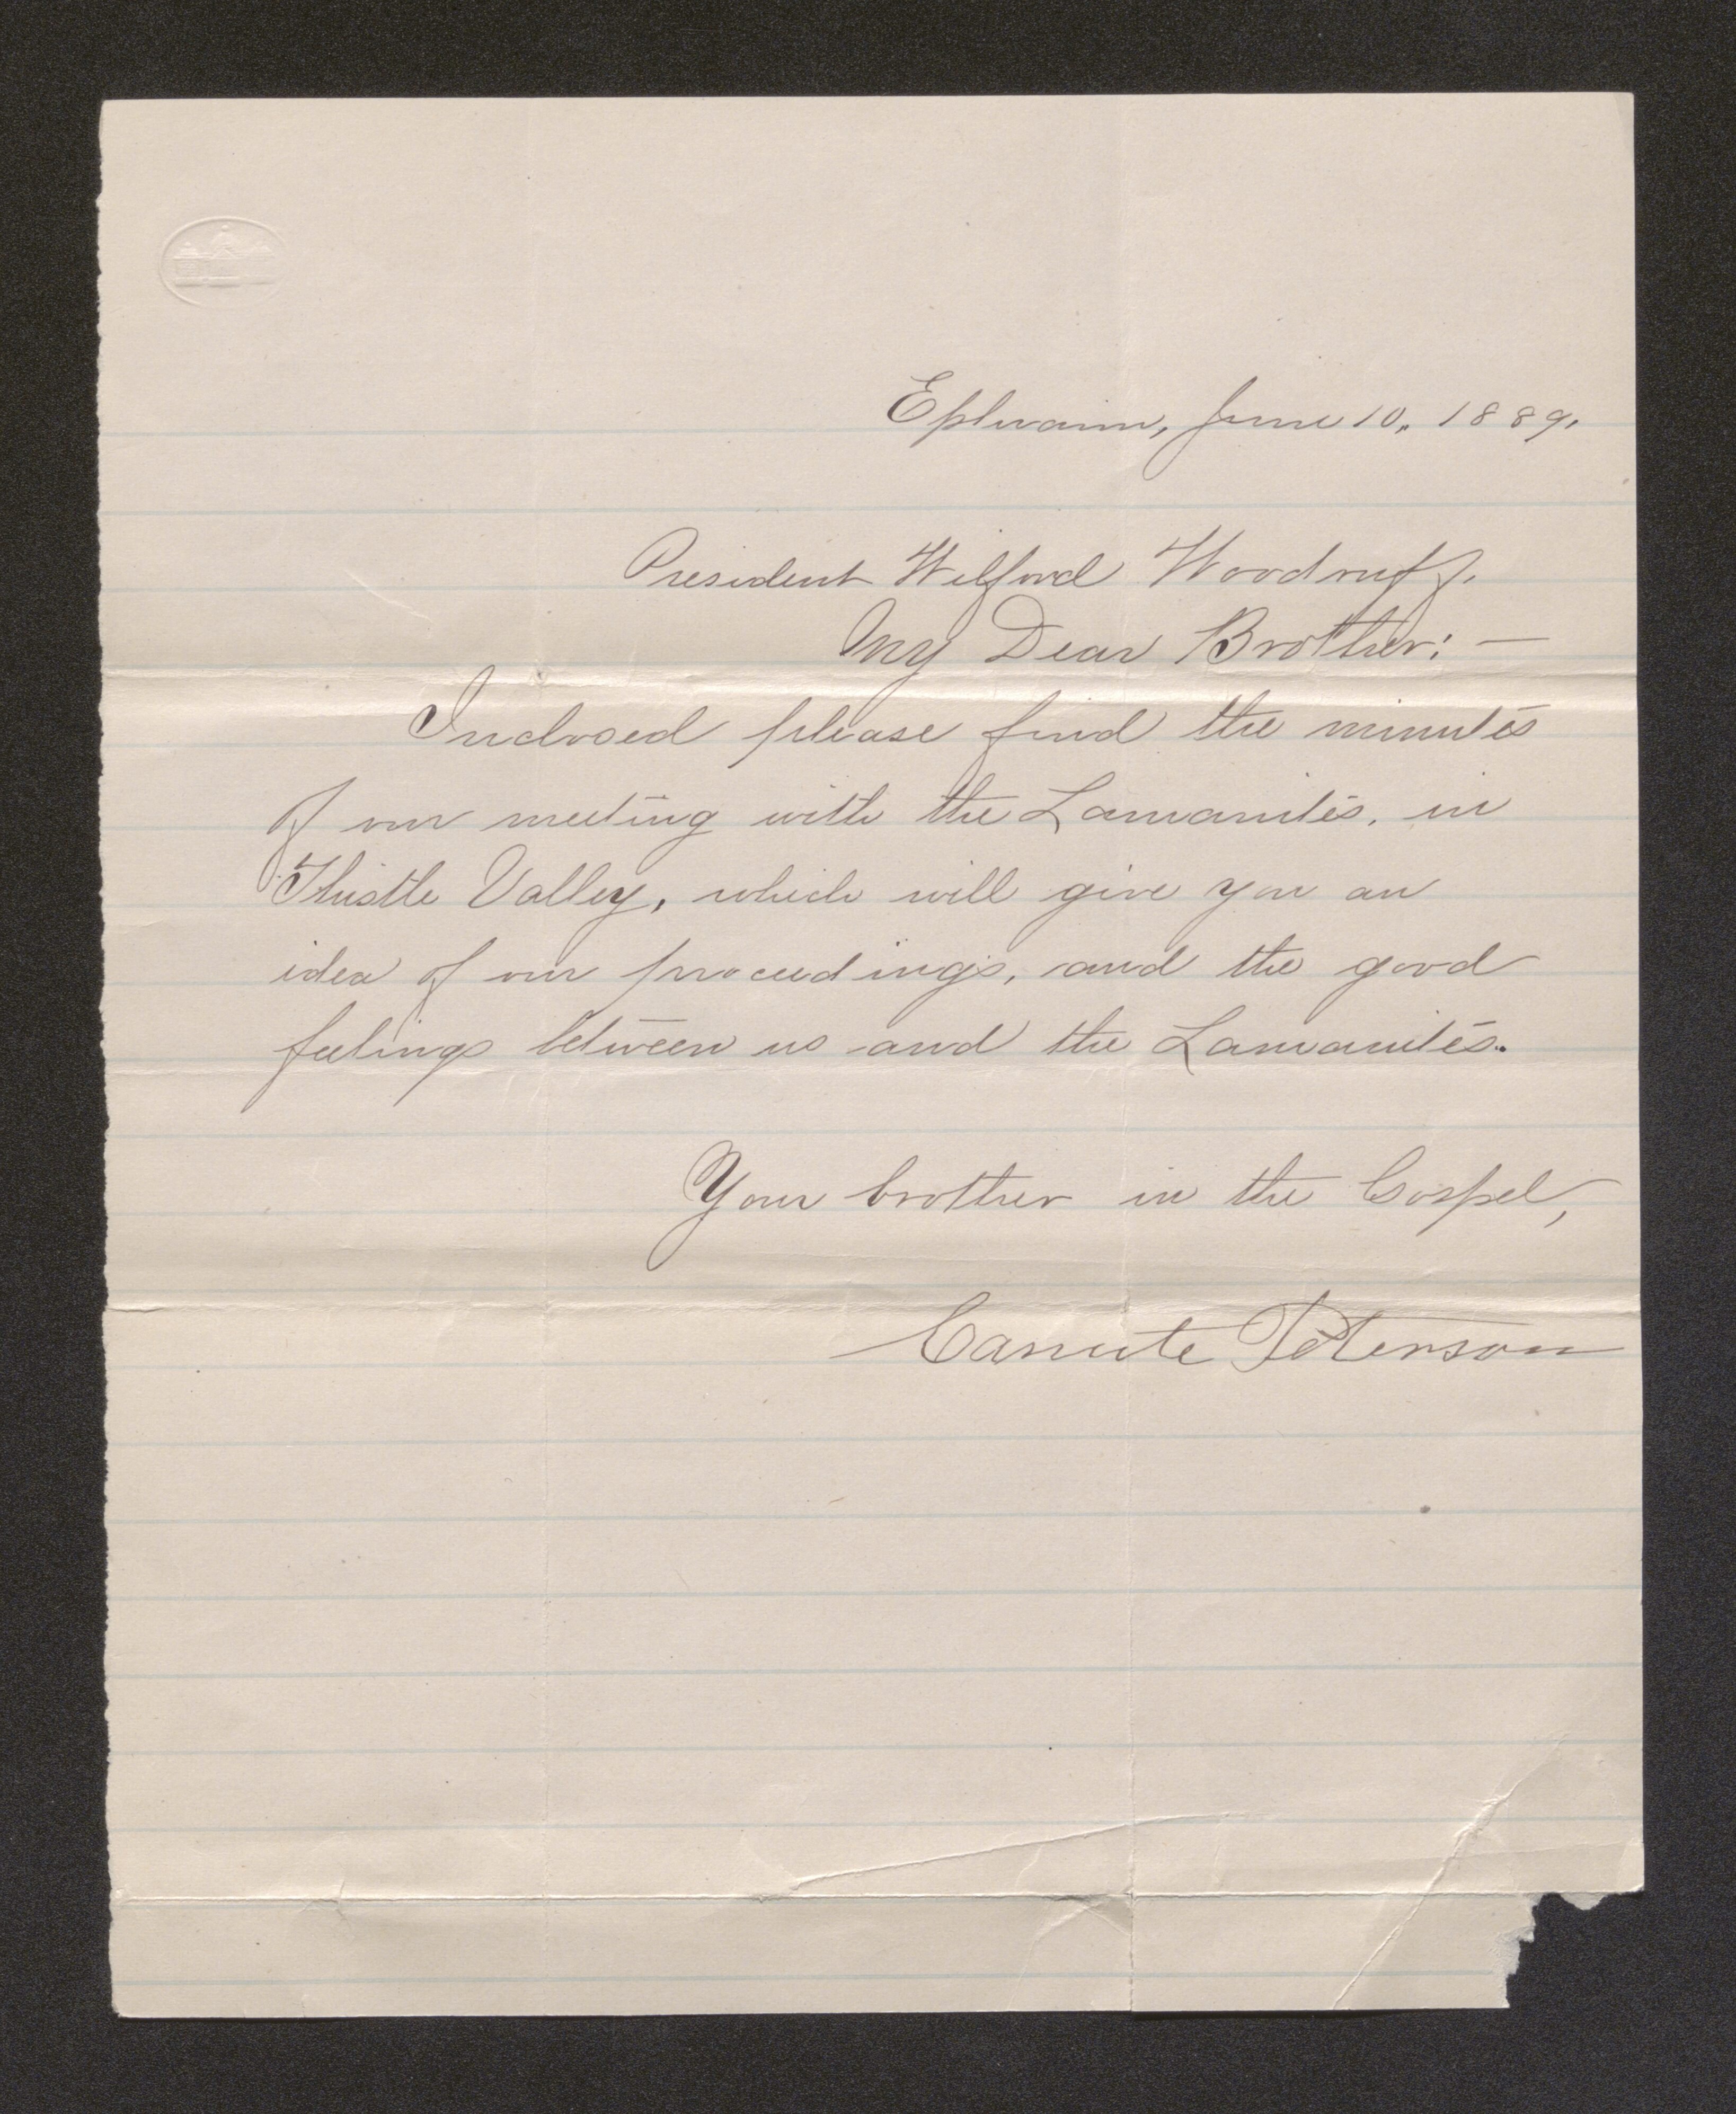 Ephraim, June 10, 1889.
President Wilford Woodruff.
My Dear Brother: —
Inclosed please find the minutes
of our meeting with the Lamanites, in
Thistle Valley, which will give you an
idea of our proceedings, and the good
feelings between us and the Lamanites.
Your brother in the Gospel,
Canute Peterson